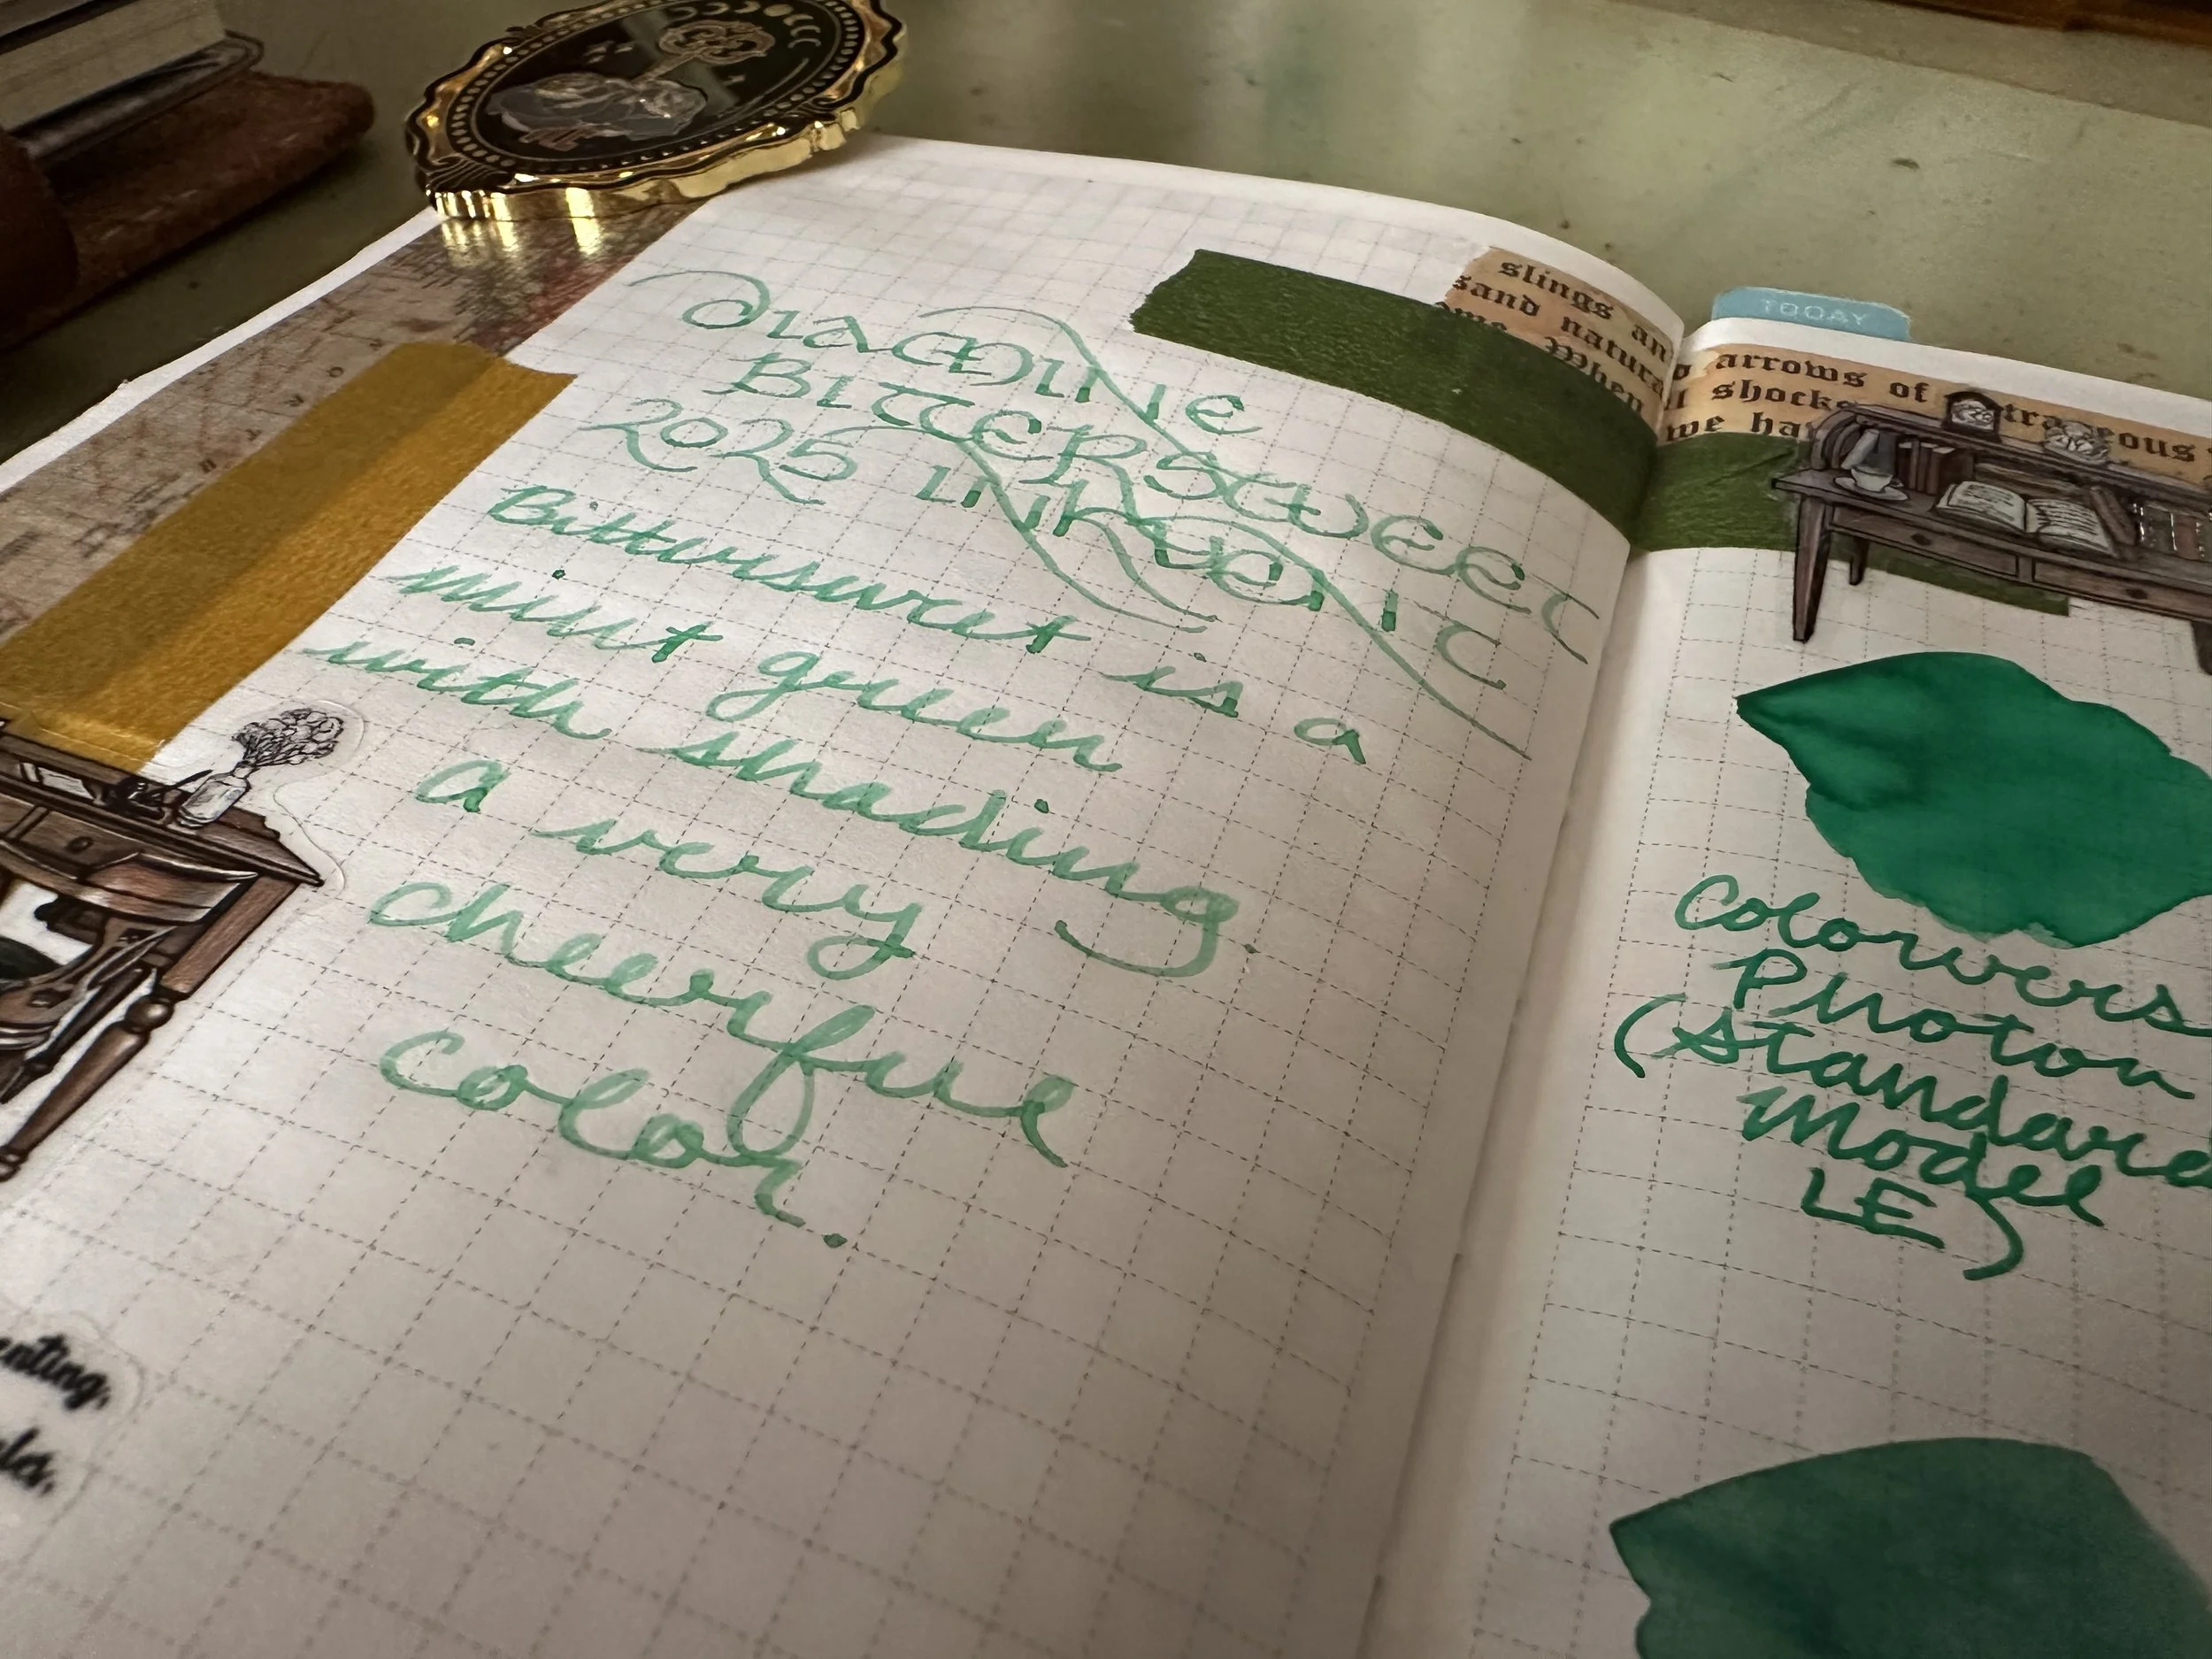 Diamine
Bittersweet
2025 Inkvent
Bittersweet is a
mint green
with shading.
a very
cheerful
color.
slings an
sand natura
When
TODAY
arrows of
l shocks
we ha
Colorvers
Photon
(Standard
Model
LE)
enting,